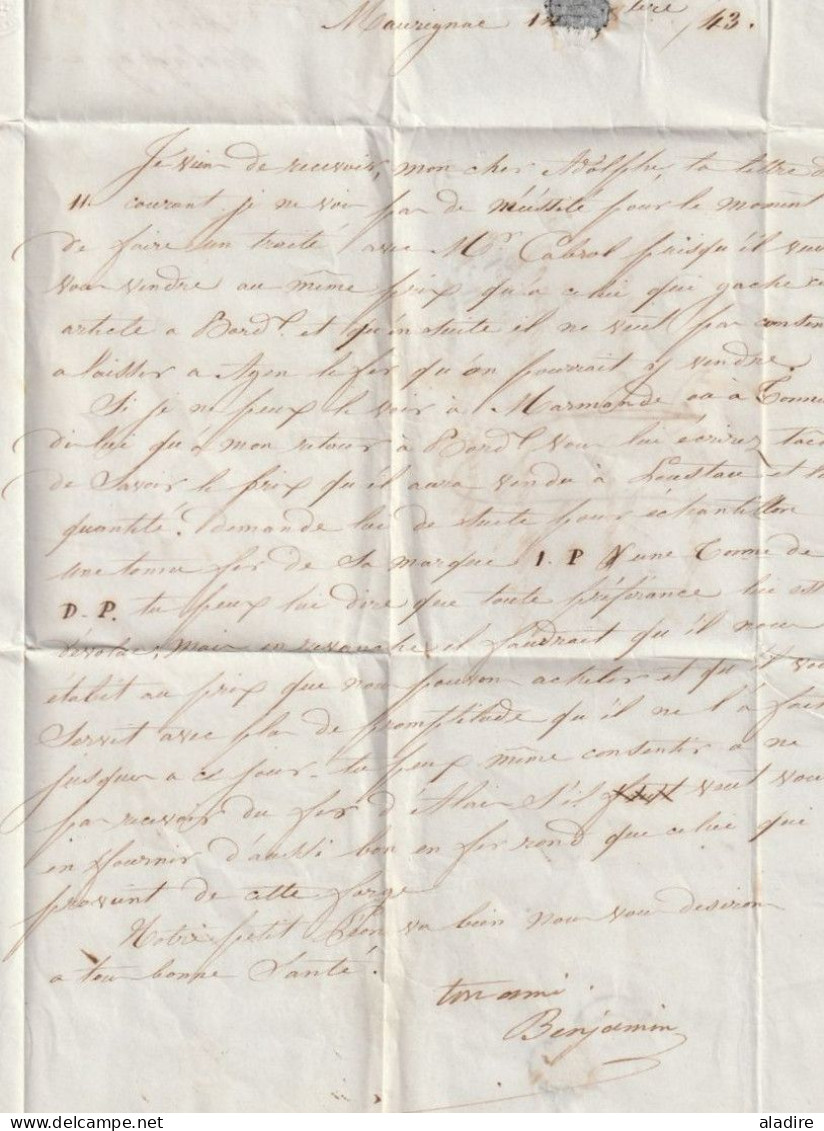 Maurignac 12 bre /43.
Je vien de recevoir, mon cher Adolphe, ta lettre d
11 courant. je ne voi pas de nécéssité pour le moment
de faire un traité avec Mr Cabrol puisqu'il veut
vou vendre au même prix qu'a celui qui gache
article a Bordx. et qu'ensuite il ne veut pas consen
a laisser a Agen le fer qu'on pourrait y vendre.
Si je ne peux le voir à Marmande ou à Tonne
di lui qu'a mon retour à Bordx vou lui écrirez tac
de Savoir le prix qu'il aura vendu à Loustau et la
quantité. demande lui de suite pour échantillon
une tonne fer de Sa marque J. P & une Tonne de
D. P. tu peux lui dire que toute préférance lui est
dévolue; mais en revanche il faudrait qu'il nou
établit au prix que nou pouvon acheter et qu'il vou
Servit avec plu de promptitude qu'il ne l'a fait
jusques a ce jour. tu peux même consentir a ne
pas recevoir du fer d' S'il veut vou
en fournir d'aussi bon en fer rond que celui qui
provient de cette forge
Notre petit Léon va bien nou vou desiron
a tou bonne Santé.
ton ami.
Benjamin
aladire delcampe.net